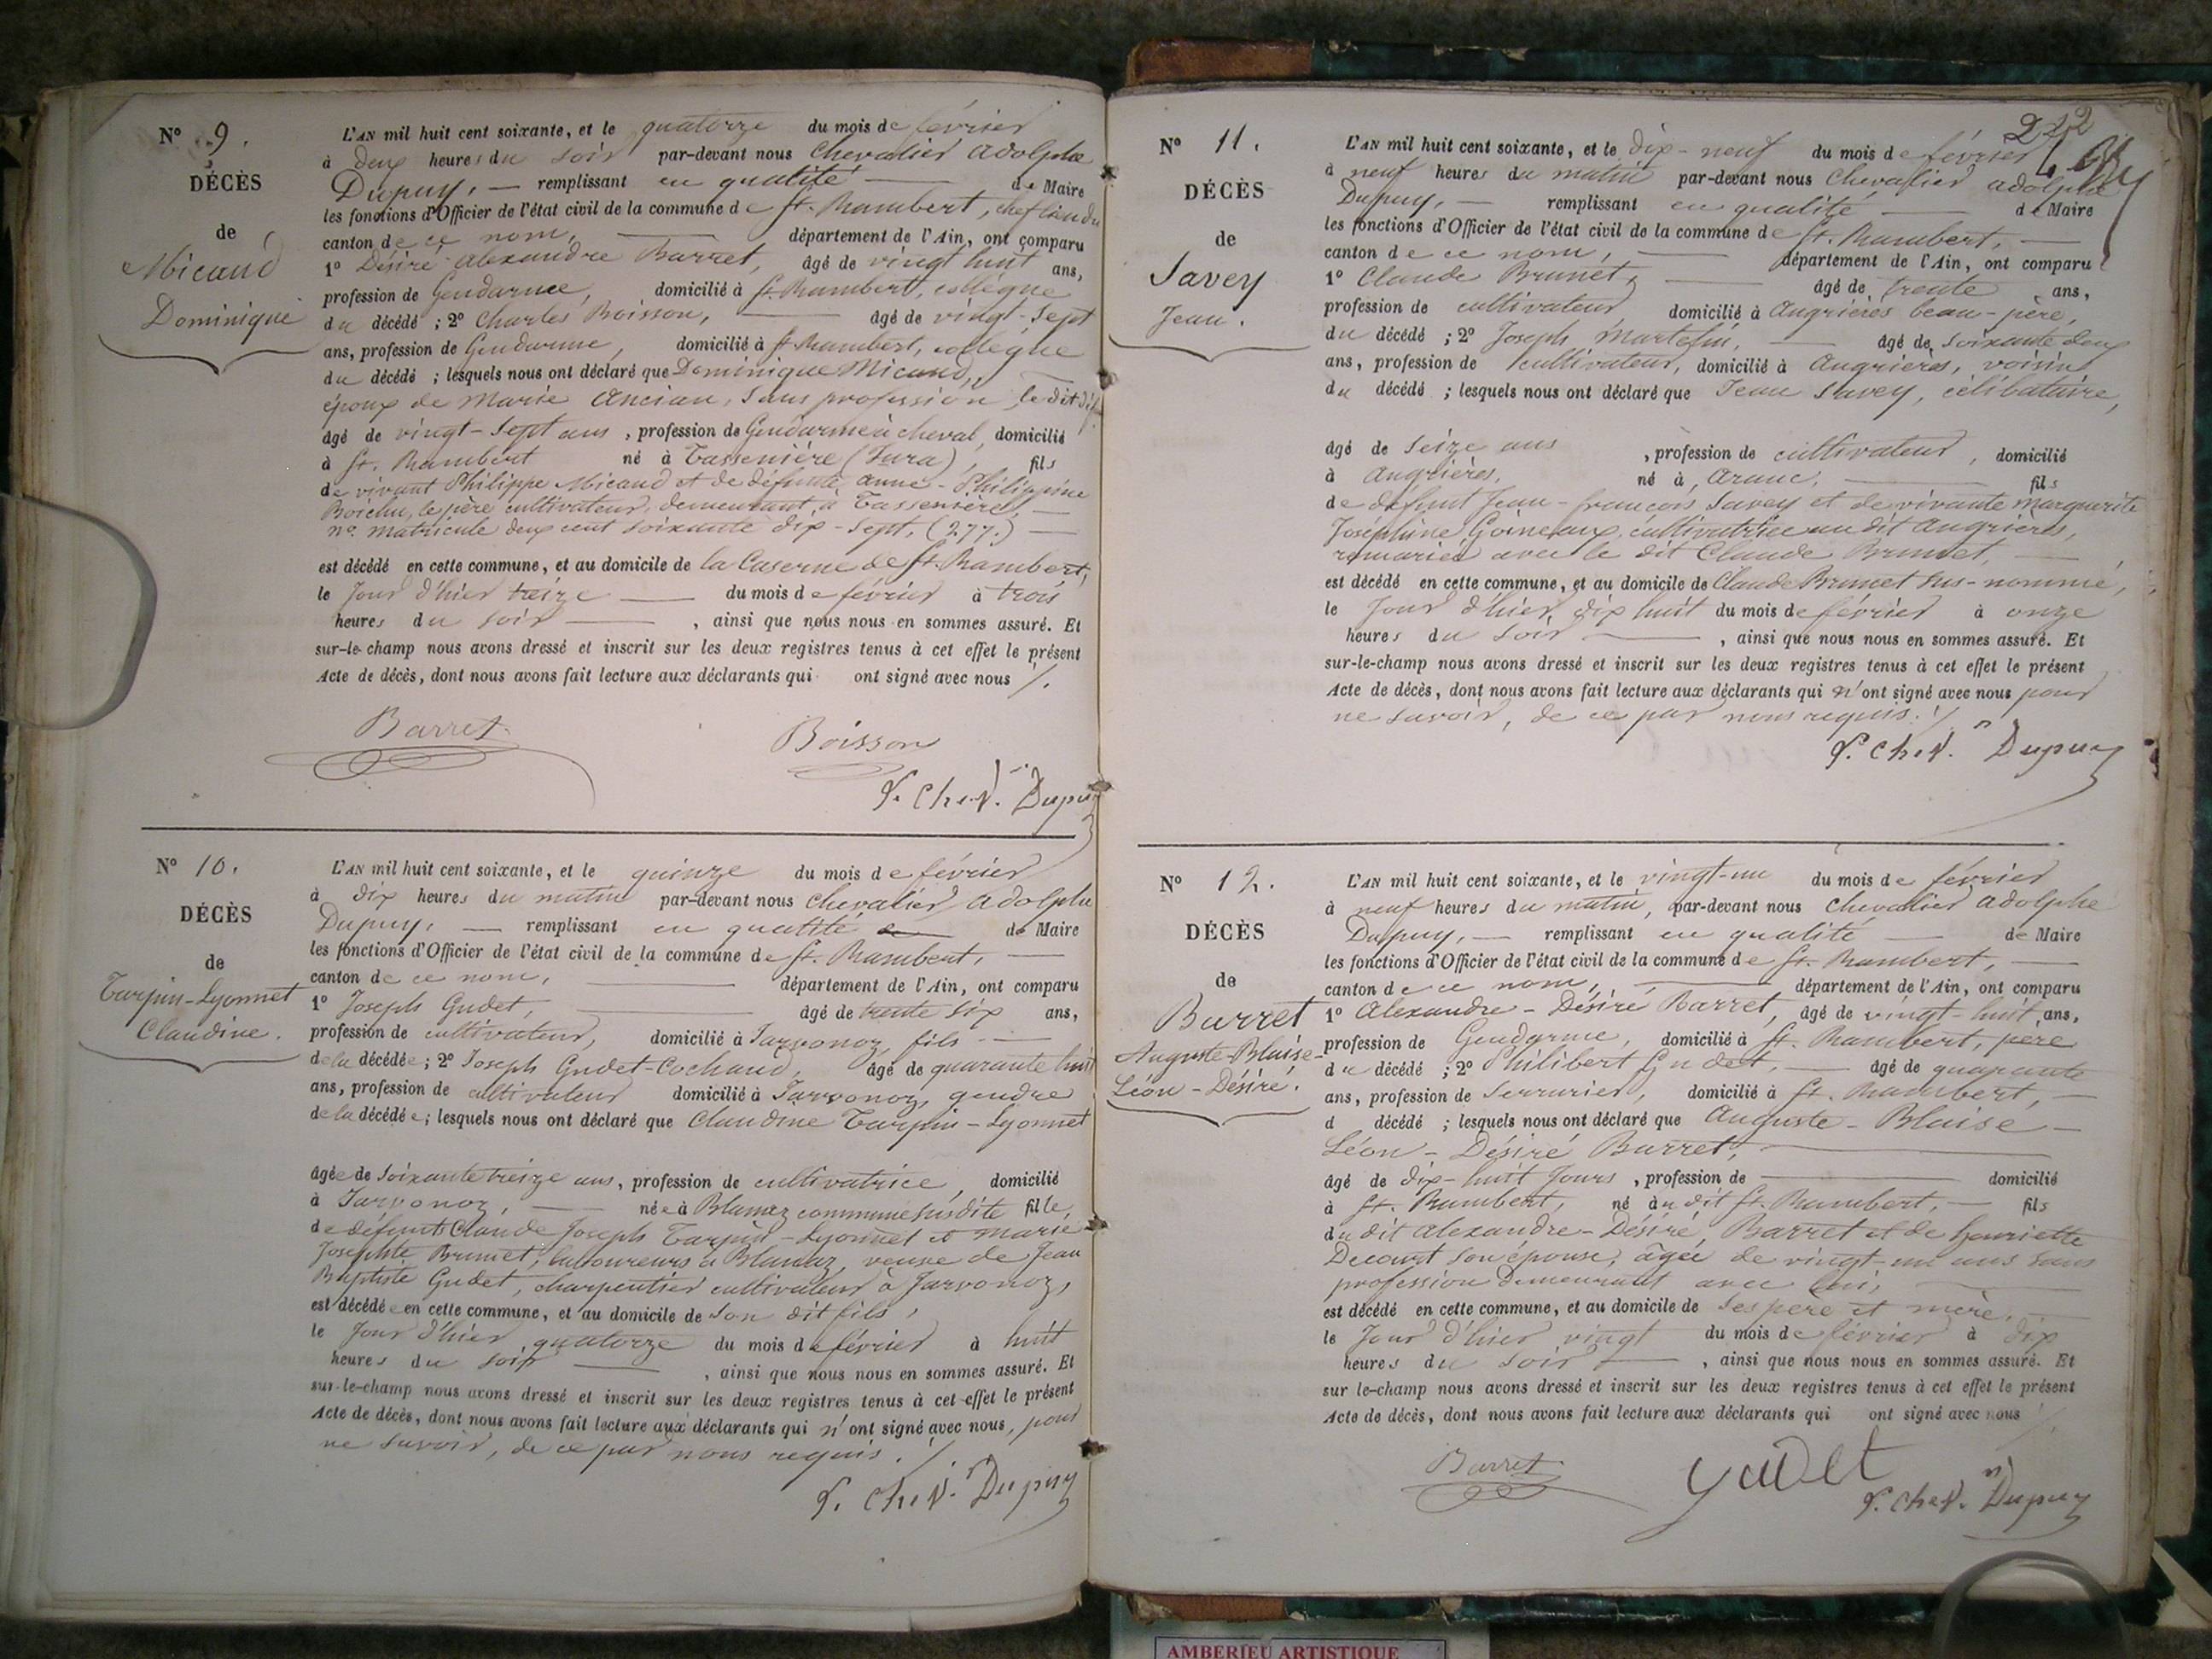 N° 9.
DÉCÈS
de
Micaud
Dominique
L'AN mil huit cent soixante, et le quatorze du mois de février
à deux heures du soir par-devant nous Chevalier Adolphe
Dupuy, — remplissant en qualité — de Maire
les fonctions d'Officier de l'état civil de la commune de St. Rambert, chef lieu du
canton de ce nom, — département de l'Ain, ont comparu
1° Désiré Alexandre Barret, âgé de vingt huit ans,
profession de Gendarme, domicilié à St. Rambert, collègue
du décédé ; 2° Charles Boisson, — âgé de vingt-sept
ans, profession de Gendarme, domicilié à St. Rambert, collègue
du décédé ; lesquels nous ont déclaré que Dominique Micaud,
époux de Marie Ancian, sans profession, le dit déf.
âgé de vingt-sept ans, profession de Gendarme à cheval, domicilié
à St. Rambert né à Tassenière (Jura), fils
de vivant Philippe Micaud et de défunte Anne-Philippine
Boichu, le père cultivateur, demeurant à Tassenière, —
n° matricule deux cent soixante dix-sept, (277.) —
est décédé en cette commune, et au domicile de la Caserne de St. Rambert,
le jour d'hier treize — du mois de février à trois
heures du soir — , ainsi que nous nous en sommes assuré. Et
sur-le-champ nous avons dressé et inscrit sur les deux registres tenus à cet effet le présent
Acte de décès, dont nous avons fait lecture aux déclarants qui ont signé avec nous /.
Barret
Boisson
Chev. Dupuy
N° 10.
DÉCÈS
de
Turpin-Lyonnet
Claudine.
L'AN mil huit cent soixante, et le quinze du mois de février
à dix heures du matin par-devant nous Chevalier Adolphe
Dupuy, — remplissant en qualité — de Maire
les fonctions d'Officier de l'état civil de la commune de St. Rambert, —
canton de ce nom, — département de l'Ain, ont comparu
1° Joseph Gudet, — âgé de trente six ans,
profession de cultivateur, domicilié à Jarvonoz, fils —
de la décédée ; 2° Joseph Gudet-Cochaud, âgé de quarante huit
ans, profession de cultivateur domicilié à Jarvonoz, gendre
de la décédée ; lesquels nous ont déclaré que Claudine Turpin-Lyonnet
âgée de soixante treize ans, profession de cultivatrice, domicilié
à Jarvonoz, — née à Blanaz commune susdite fille
de défunts Claude Joseph Turpin-Lyonnet et Marie
Josephte Brunet, laboureurs à Blanaz, veuve de Jean
Baptiste Gudet, charpentier cultivateur à Jarvonoz,
est décédée en cette commune, et au domicile de son dit fils,
le jour d'hier quatorze du mois de février à huit
heures du soir — , ainsi que nous nous en sommes assuré. Et
sur-le-champ nous avons dressé et inscrit sur les deux registres tenus à cet effet le présent
Acte de décès, dont nous avons fait lecture aux déclarants qui n'ont signé avec nous, pour
ne savoir, de ce par nous requis. /
Chev. Dupuy
222
N° 11.
DÉCÈS
de
Savey
Jean.
L'AN mil huit cent soixante, et le dix-neuf du mois de février
à neuf heures du matin par-devant nous Chevalier Adolphe
Dupuy, — remplissant en qualité — de Maire
les fonctions d'Officier de l'état civil de la commune de St. Rambert, —
canton de ce nom, — département de l'Ain, ont comparu
1° Claude Brunet, — âgé de trente ans,
profession de cultivateur domicilié à Angrières beau-père,
du décédé ; 2° Joseph Martelin, — âgé de soixante deux
ans, profession de cultivateur, domicilié à Angrières, voisin
du décédé ; lesquels nous ont déclaré que Jean Savey, célibataire,
âgé de seize ans , profession de cultivateur, domicilié
à Angrières, né à Aranc, — fils
de défunt Jean-François Savey et de vivante Marguerite
Joséphine Gorneaux, cultivatrice au dit Angrières,
remariée avec le dit Claude Brunet, —
est décédé en cette commune, et au domicile de Claude Brunet sus-nommé,
le jour d'hier dix huit du mois de février à onze
heures du soir — , ainsi que nous nous en sommes assuré. Et
sur-le-champ nous avons dressé et inscrit sur les deux registres tenus à cet effet le présent
Acte de décès, dont nous avons fait lecture aux déclarants qui n'ont signé avec nous pour
ne savoir, de ce par nous requis. /
Chev. Dupuy
N° 12.
DÉCÈS
de
Barret
Auguste-Blaise-
Léon-Désiré.
L'AN mil huit cent soixante, et le vingt-un du mois de février
à neuf heures du matin, par-devant nous Chevalier Adolphe
Dupuy, — remplissant en qualité — de Maire
les fonctions d'Officier de l'état civil de la commune de St. Rambert, —
canton de ce nom, — département de l'Ain, ont comparu
1° Alexandre-Désiré Barret, âgé de vingt-huit ans,
profession de Gendarme, domicilié à St. Rambert, père
du décédé ; 2° Philibert Gudet, — âgé de quarante
ans, profession de Serrurier, domicilié à St. Rambert, —
d décédé ; lesquels nous ont déclaré que Auguste-Blaise-
Léon-Désiré Barret, —
âgé de dix-huit jours, profession de — domicilié
à St. Rambert, né au dit St. Rambert, — fils
du dit Alexandre-Désiré Barret et de Henriette
Decourt son épouse, âgée de vingt-un ans sans
profession demeurant avec lui, —
est décédé en cette commune, et au domicile de ses père et mère,
le jour d'hier vingt du mois de février à dix
heures du soir — , ainsi que nous nous en sommes assuré. Et
sur le-champ nous avons dressé et inscrit sur les deux registres tenus à cet effet le présent
Acte de décès, dont nous avons fait lecture aux déclarants qui ont signé avec nous /.
Barret
Gudet
Chev. Dupuy
AMBERIEU ARTISTIQUE